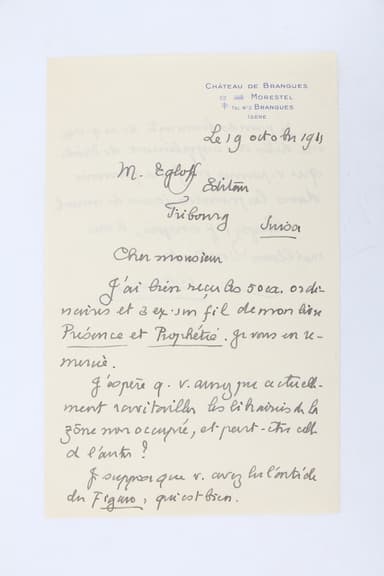 CHÂTEAU DE BRANGUES
MORESTEL
TEL Nº 2 BRANGUES
ISÈRE
Le 19 octobre 194
M. Egloff
Editeur
Fribourg
Suisse
Cher monsieur
J'ai bien reçu les 50 ex. ordi-
naires et 2 ex. sur fil de mon livre
Présence et Prophétie. Je vous en re-
mercie.
J'espère q. v. avez pu actuelle-
ment ravitailler les librairies de la
zône non occupée, et peut-être celles
de l'autre ?
Je suppose que v. avez lu l'article
du Figaro, qui est bien.